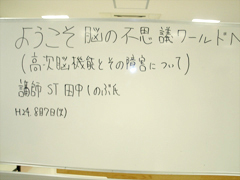 ようこそ脳の不思議ワールドへ
(高次脳機能とその障害について)
講師 ST 田中しのぶ氏
H24.8月7日(火)